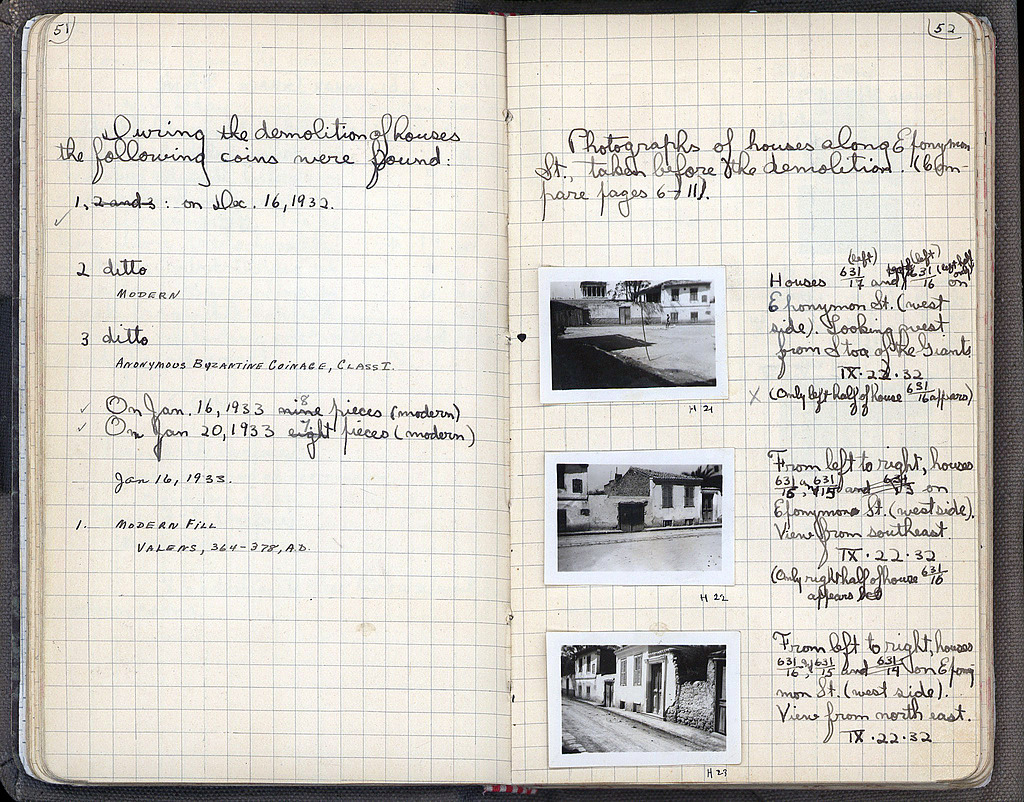 51
During the demolition of houses
the following coins were found:
1, 2 and 3 : on Dec. 16, 1932.
2 ditto
MODERN
3 ditto
ANONYMOUS BYZANTINE COINAGE, CLASS I.
8
On Jan. 16, 1933 nine pieces (modern)
7
On Jan 20, 1933 eight pieces (modern)
Jan 16, 1933.
1. MODERN FILL
VALENS, 364-378, A.D.
52
Photographs of houses along Eponymon
St., taken before the demolition. (Com-
pare pages 6-11).
(left) (left)
Houses 631/17 and 631/16 (left half only) on
Eponymon St. (west
side). Looking west
from Stoa of the Giants
IX.22.32
X (Only left half of house 631/16 appears)
H 21
From left to right, houses
631/16, 631/15 and on
Eponymon St. (west side).
View from southeast
IX.22.32
(Only right half of house 631/16
appears
H 22
From left to right, houses
631/16, 631/15 and 631/14 on Epony
mon St. (west side).
View from north east.
IX.22.32
H 23